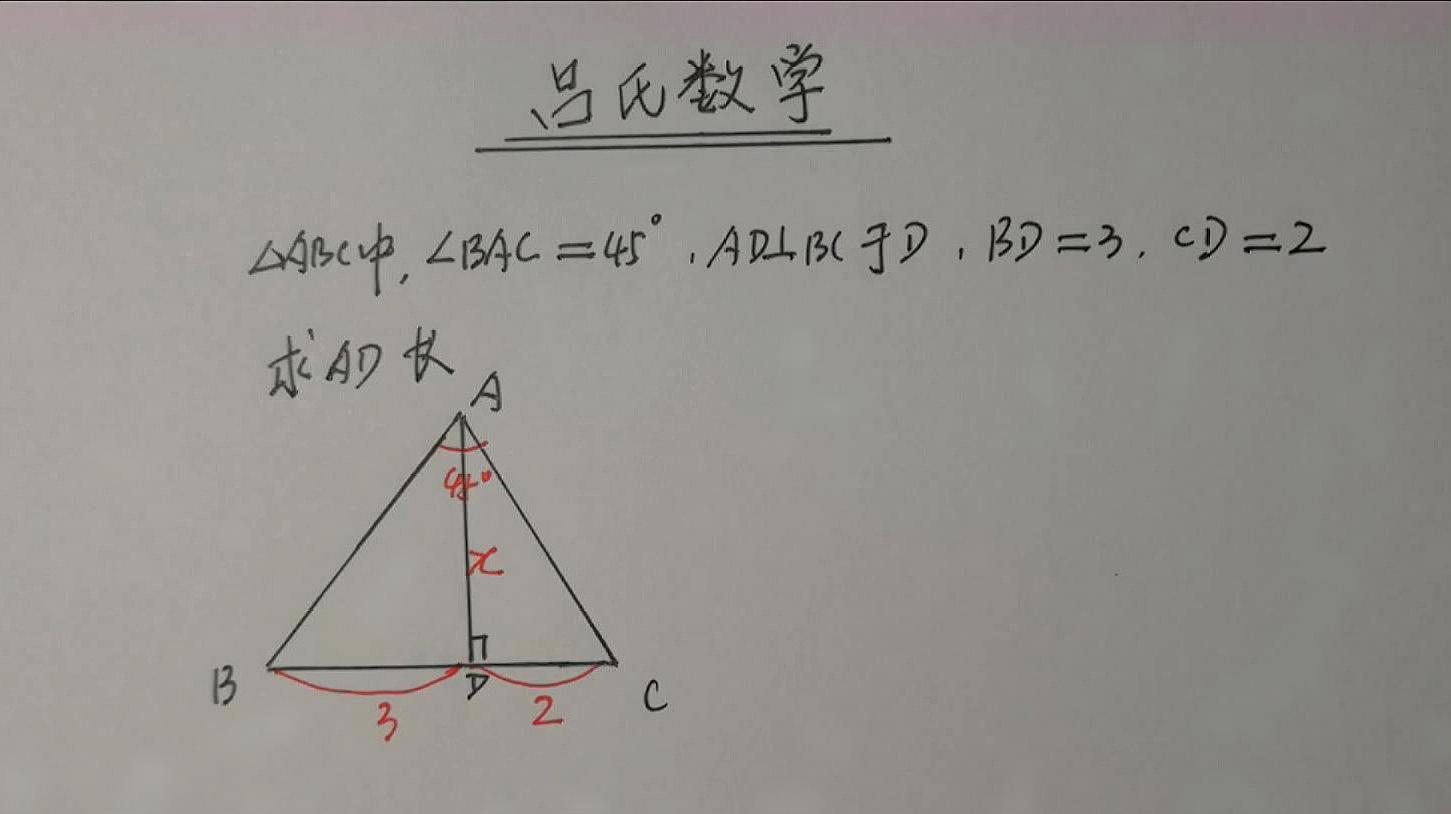 吕氏数学
△ABC中,∠BAC=45°,AD⊥BC于D,BD=3,CD=2
求AD长
A
45°
x
B
D
C
3
2